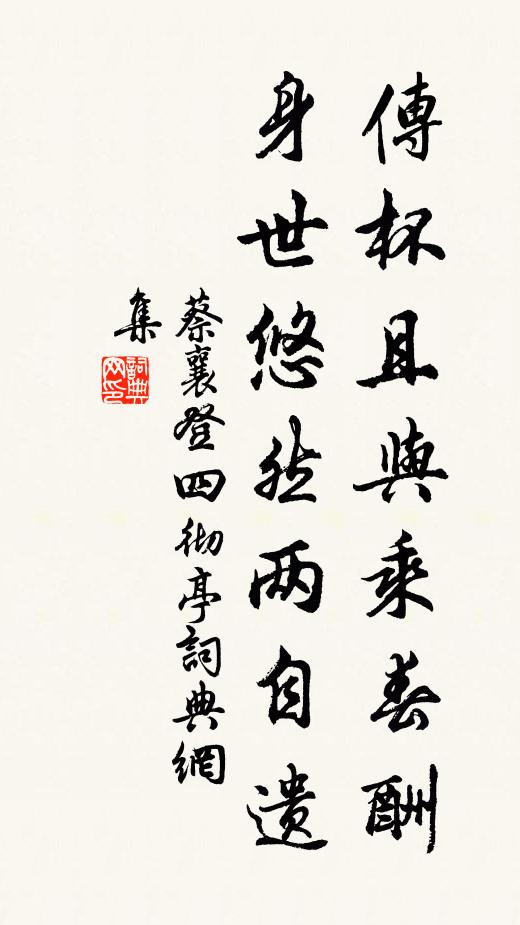 傳杯且與乘春酬
身世悠然两自遗
蔡襄登四彻亭詞典網
集
詞典网印